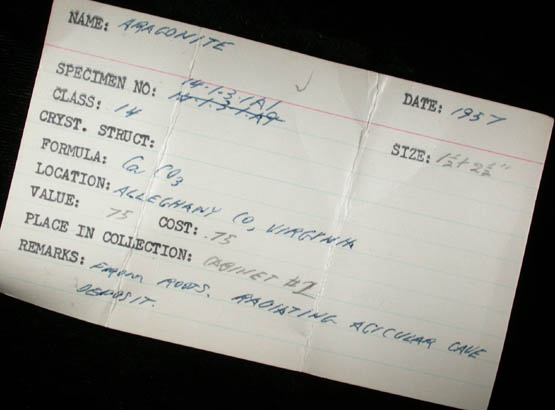 NAME: ARAGONITE
DATE: 1957
SPECIMEN NO: 14-1-3-1A1
CLASS: 14
SIZE: 1½ x 2½"
CRYST. STRUCT:
FORMULA: Ca CO3
LOCATION: ALLEGHANY CO, VIRGINIA
VALUE: 75 COST: .75
PLACE IN COLLECTION: CABINET #1
REMARKS: FROM ROOTS. RADIATING ACICULAR CAVE
DEPOSIT.